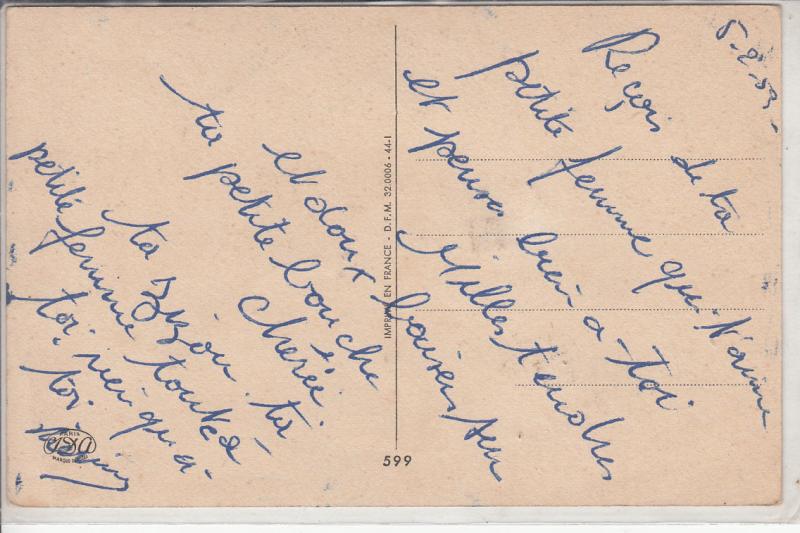 5-2-53-
Reçois de ta
petite femme qui t'aime
et penses bien a toi
Milles tendres
baisers sur
et doux
ta petite bouche
cherie
ta Zizou. ta
petite femme toute à
toi, rien qu'a
toi
IMPRIMÉ EN FRANCE - D.F.M. 32.0006 - 44-I
599
PARIS